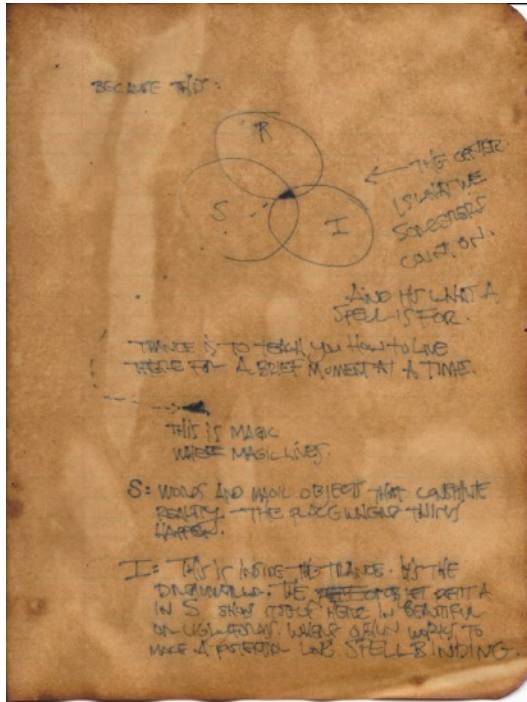 BECAUSE THIS:
R
S
I
← THE CENTER
IS WHAT WE
SORCERERS
COUNT ON.
AND IT'S WHAT A
SPELL IS FOR.
TRANCE IS TO TEACH YOU HOW TO LIVE
THERE FOR A BRIEF MOMENT AT A TIME.
THIS IS MAGIC
WHERE MAGIC LIVES.
S: WORDS AND MAGIC OBJECTS THAT CONSTITUTE
REALITY - THE PLACE WHERE THINGS
HAPPEN.
I: THIS IS INSIDE THE TRANCE. IT'S THE
THE
IN S SHOW HERE IN BEAUTIFUL
OR WHERE WORKS TO
MAKE A SPELLBINDING.